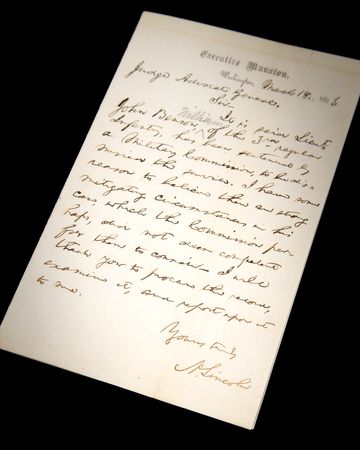 Executive Mansion,
Washington, March 18, 1863
Judge Advocate General.
Sir
It is said Lieut
John Benson Williams of the 3rd regular
Infantry, has been sentenced by
a Military Commission to be dis-
missed the service. I have some
reason to believe there are strong
mitigating circumstances in his
case, which the Commission per
haps, did not deem competent
for them to consider. I will
thank you to procure the record,
examine it, and report upon it
to me.
Yours truly
A. Lincoln